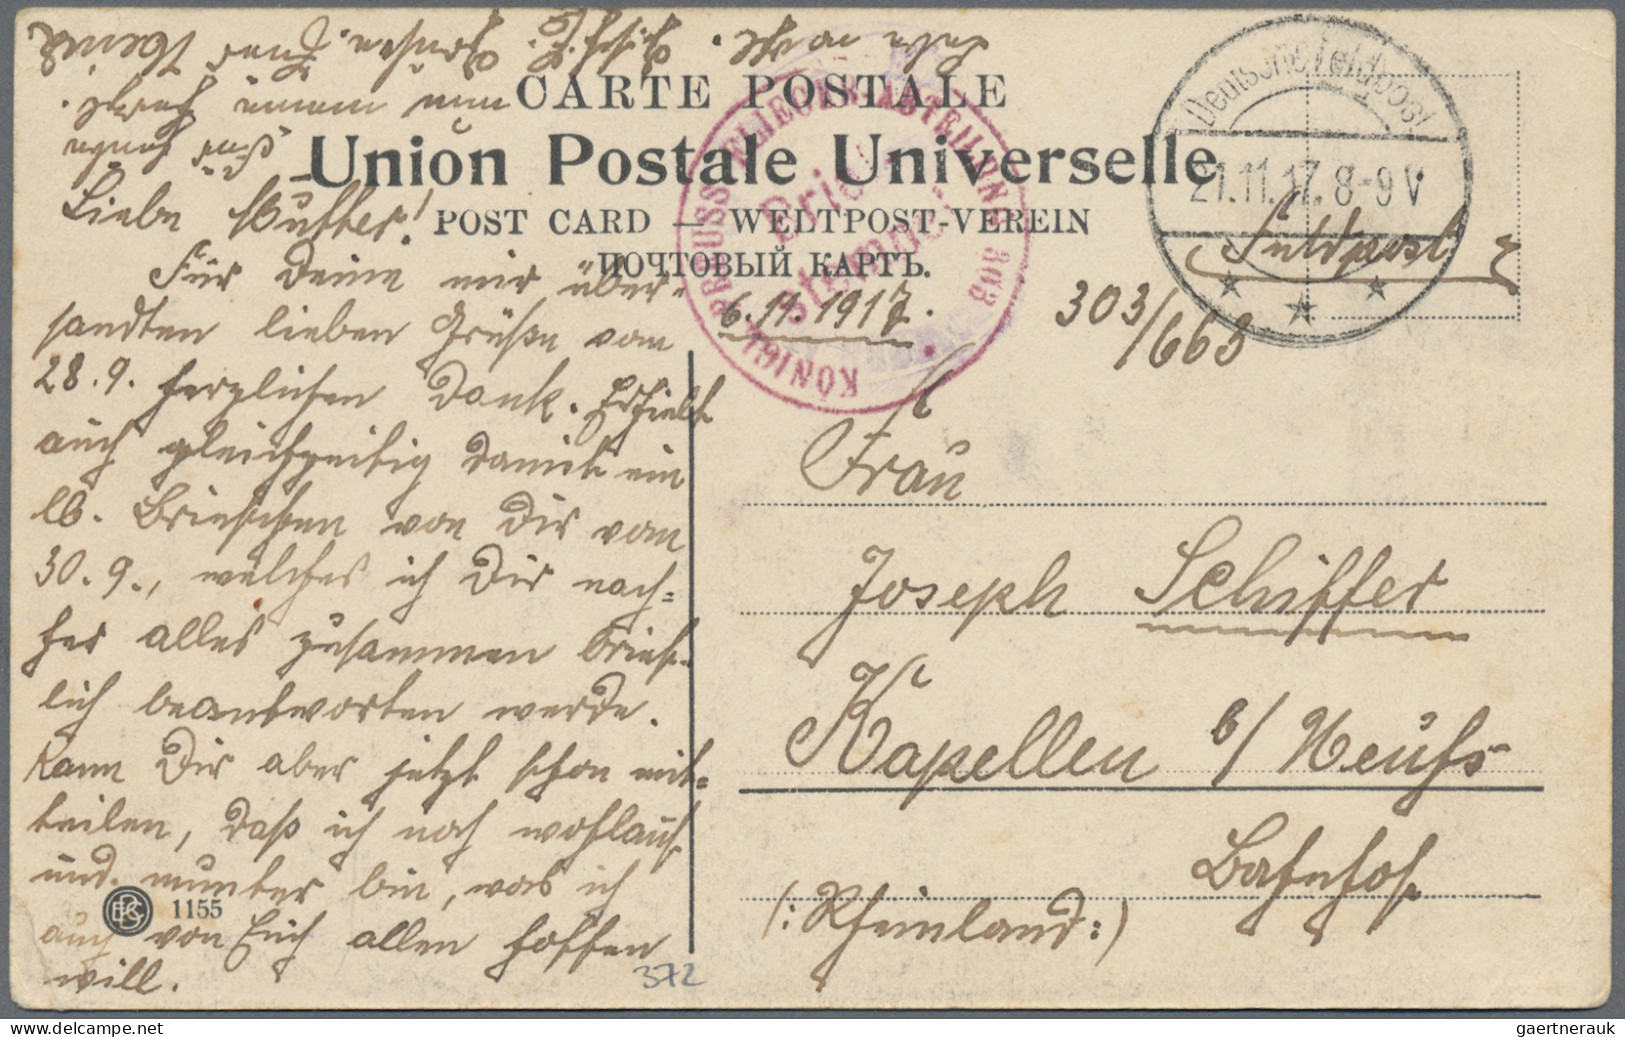 CARTE POSTALE
Union Postale Universelle
POST CARD — WELTPOST-VEREIN
ПОЧТОВЫЙ КАРТЪ.
Deutsche Feldpost
21.11.17. 8-9 V
KÖNIGL. PREUSS. FLIEGER ABTEILUNG 303
Brief-
stempel
Feldpost
303/663
6.11.1917.
Liebe Mutter!
Für Deine mir über-
sandten lieben Grüße vom
28.9. herzlichen Dank. Erhielt
auch gleichzeitig damit ein
lb. Briefchen von Dir vom
30.9., welches ich Dir nach-
her alles zusammen brief-
lich beantworten werde.
Kann Dir aber jetzt schon mit-
teilen, daß ich noch wohlauf
und munter bin, was ich
auch von Euch allen hoffen
will.
Frau
Joseph Schiffer
Kapellen b/ Neuß
Bahnhof
(: Rheinland :)
1155
372
gaertnerauk www.delcampe.net